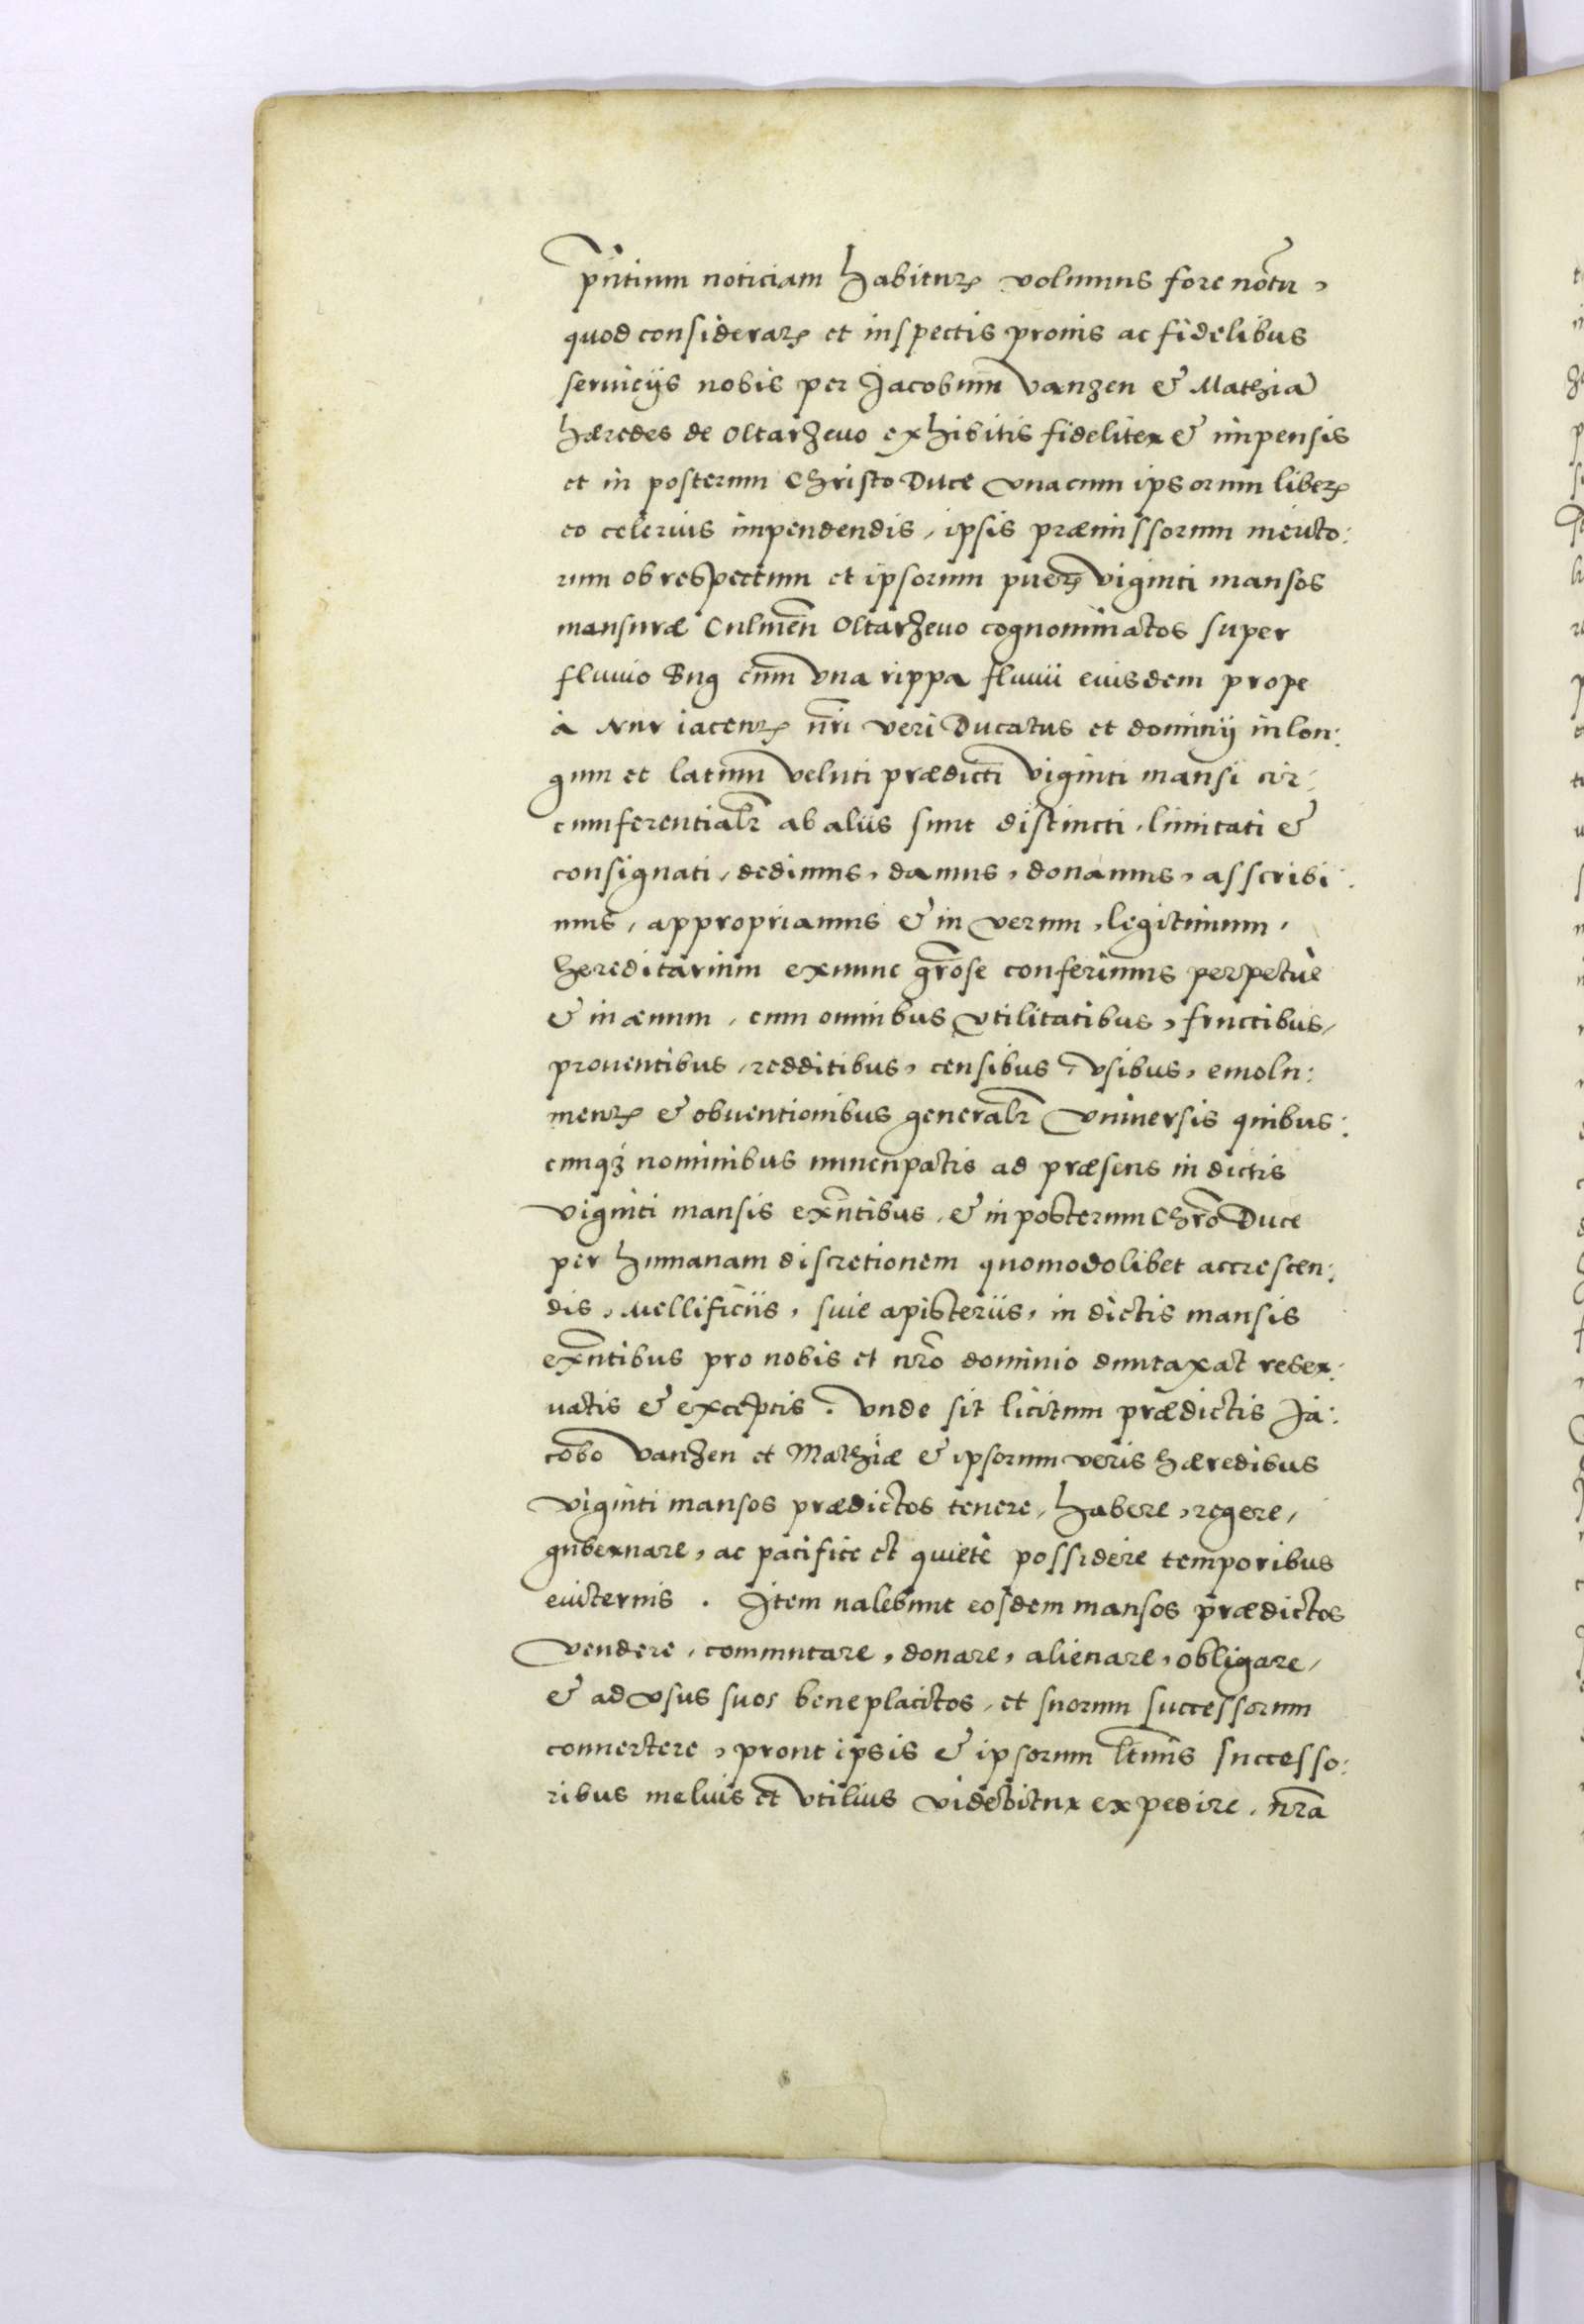 pn̄tium noticiam habiturꝝ volumus fore notū,
quod consideratꝝ et inspectis pronis ac fidelibus
seruicijs nobis per Jacobum Vanzen & Mathiā
hæredes de Oltarzeuo exhibitis fideliter & impensis
et in posterum Christo Duce vnacum ipsorum liberꝝ
eo celerius impendendis, ipsis præmissorum merito:
rum ob respectum et ipsorum puerꝝ viginti mansos
mansuræ Culmen̄ Oltarzeuo cognominatos super
fluuio Bug cum vna rippa fluuii eiusdem prope
à Nur iacentꝝ nr̄i veri Ducatus et dominij in lon:
gum et latum veluti prædicti viginti mansi cir:
cumferentialr̄ ab aliis sunt distincti, limitati &
consignati, dedimus, damus, donamus, asscribi:
mus, appropriamus & in verum, legitimum,
hereditarium exnunc gr̄ose conferimus perpetuè
& in æuum, cum omnibus vtilitatibus, fructibus,
prouentibus, redditibus, censibus, vsibus, emolu:
mentꝝ & obuentionibus generalr̄ vniuersis quibus:
cunqꝫ nominibus nuncupatis ad præsens in dictis
viginti mansis exn̄tibus, & in posterum Chr̄o Duce
per humanam discretionem quomodolibet accrescen:
dis, Mellificiis, siue apisteriis, in dictis mansis
exn̄tibus pro nobis et nr̄o dominio duntaxat reser:
uatis & exceptis. Vnde sit licitum prædictis Ja:
cobo Vanzen et Mathiæ & ipsorum veris hæredibus
viginti mansos prædictos tenere, habere, regere,
gubernare, ac pacifice et quietè possidere temporibus
euiternis. Item ualebunt eosdem mansos prædictos
vendere, commutare, donare, alienare, obligare,
& ad vsus suos beneplacitos, et suorum successorum
conuertere, prout ipsis & ipsorum ltīmis successo:
ribus melius et vtilius videbitur expedire, nr̄a